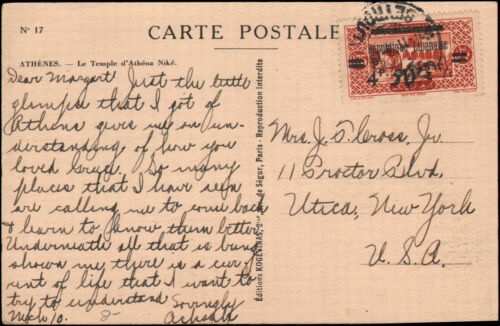 N° 17
CARTE POSTALE
ATHÈNES. — Le Temple d'Athéna Niké.
Dear Margaret Just the little
glimpse that I got of
Athens gives me an un-
derstanding of how you
loved Greece. So many
places that I have seen
are calling me to come back
& learn to know them better.
Underneath all that is being
shown me there is a cur
rent of life that I want to
try to understand
Lovingly
Mch 10.
Éditions KOGEVINAS, rue de Ségur, Paris - Reproduction interdite
République Libanaise
BEYROUTH
Mrs. J. T. Cross, Jr.
11 Proctor Blvd,
Utica, New York
U.S.A.